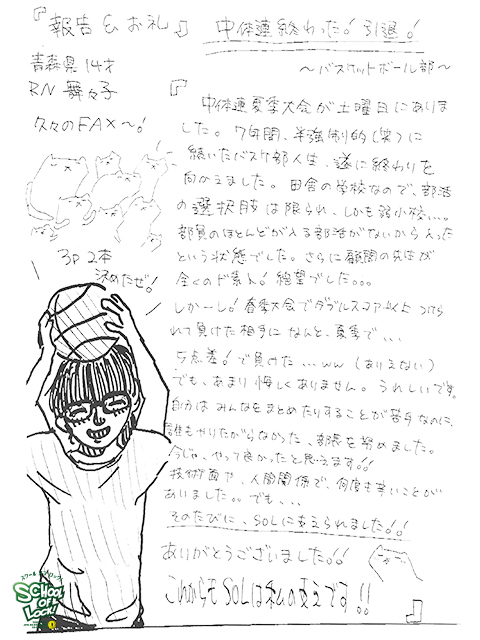 『報告&お礼』 中体連終わった!引退!
〜バスケットボール部〜
青森県14才
RN 舞々子
久々のFAX〜!
3P 2本
決めたぜ!
『中体連夏季大会が土曜日にありま
した。7年間、半強制的(笑)に
続いたバスケ部人生、遂に終わりを
向かえました。田舎の学校なので、部活
の選択肢は限られ、しかも弱小校...。
部員のほとんどが入る部活がないから入った
という状態でした。さらに顧問の先生が
全くのド素人!絶望でした...
しかーし!春季大会でダブルスコア以上つけら
れて負けた相手になんと、夏季で...
5点差!で負けた...ww(ありえない)
でも、あまり悔しくありません。うれしいです。
自分はみんなをまとめたりすることが苦手なのに、
誰もやりたがらなかった、部長を努めました。
今じゃ、やって良かったと思うます!!
技術面や、人間関係で、何度も辛いことが
ありました。。でも、、、
そのたびに、SOLに支えられました!!
ありがとうございました!!
これからもSOLは私の支えです!!』
スクールオブロック!
SCHOOL
OF
LOCK!